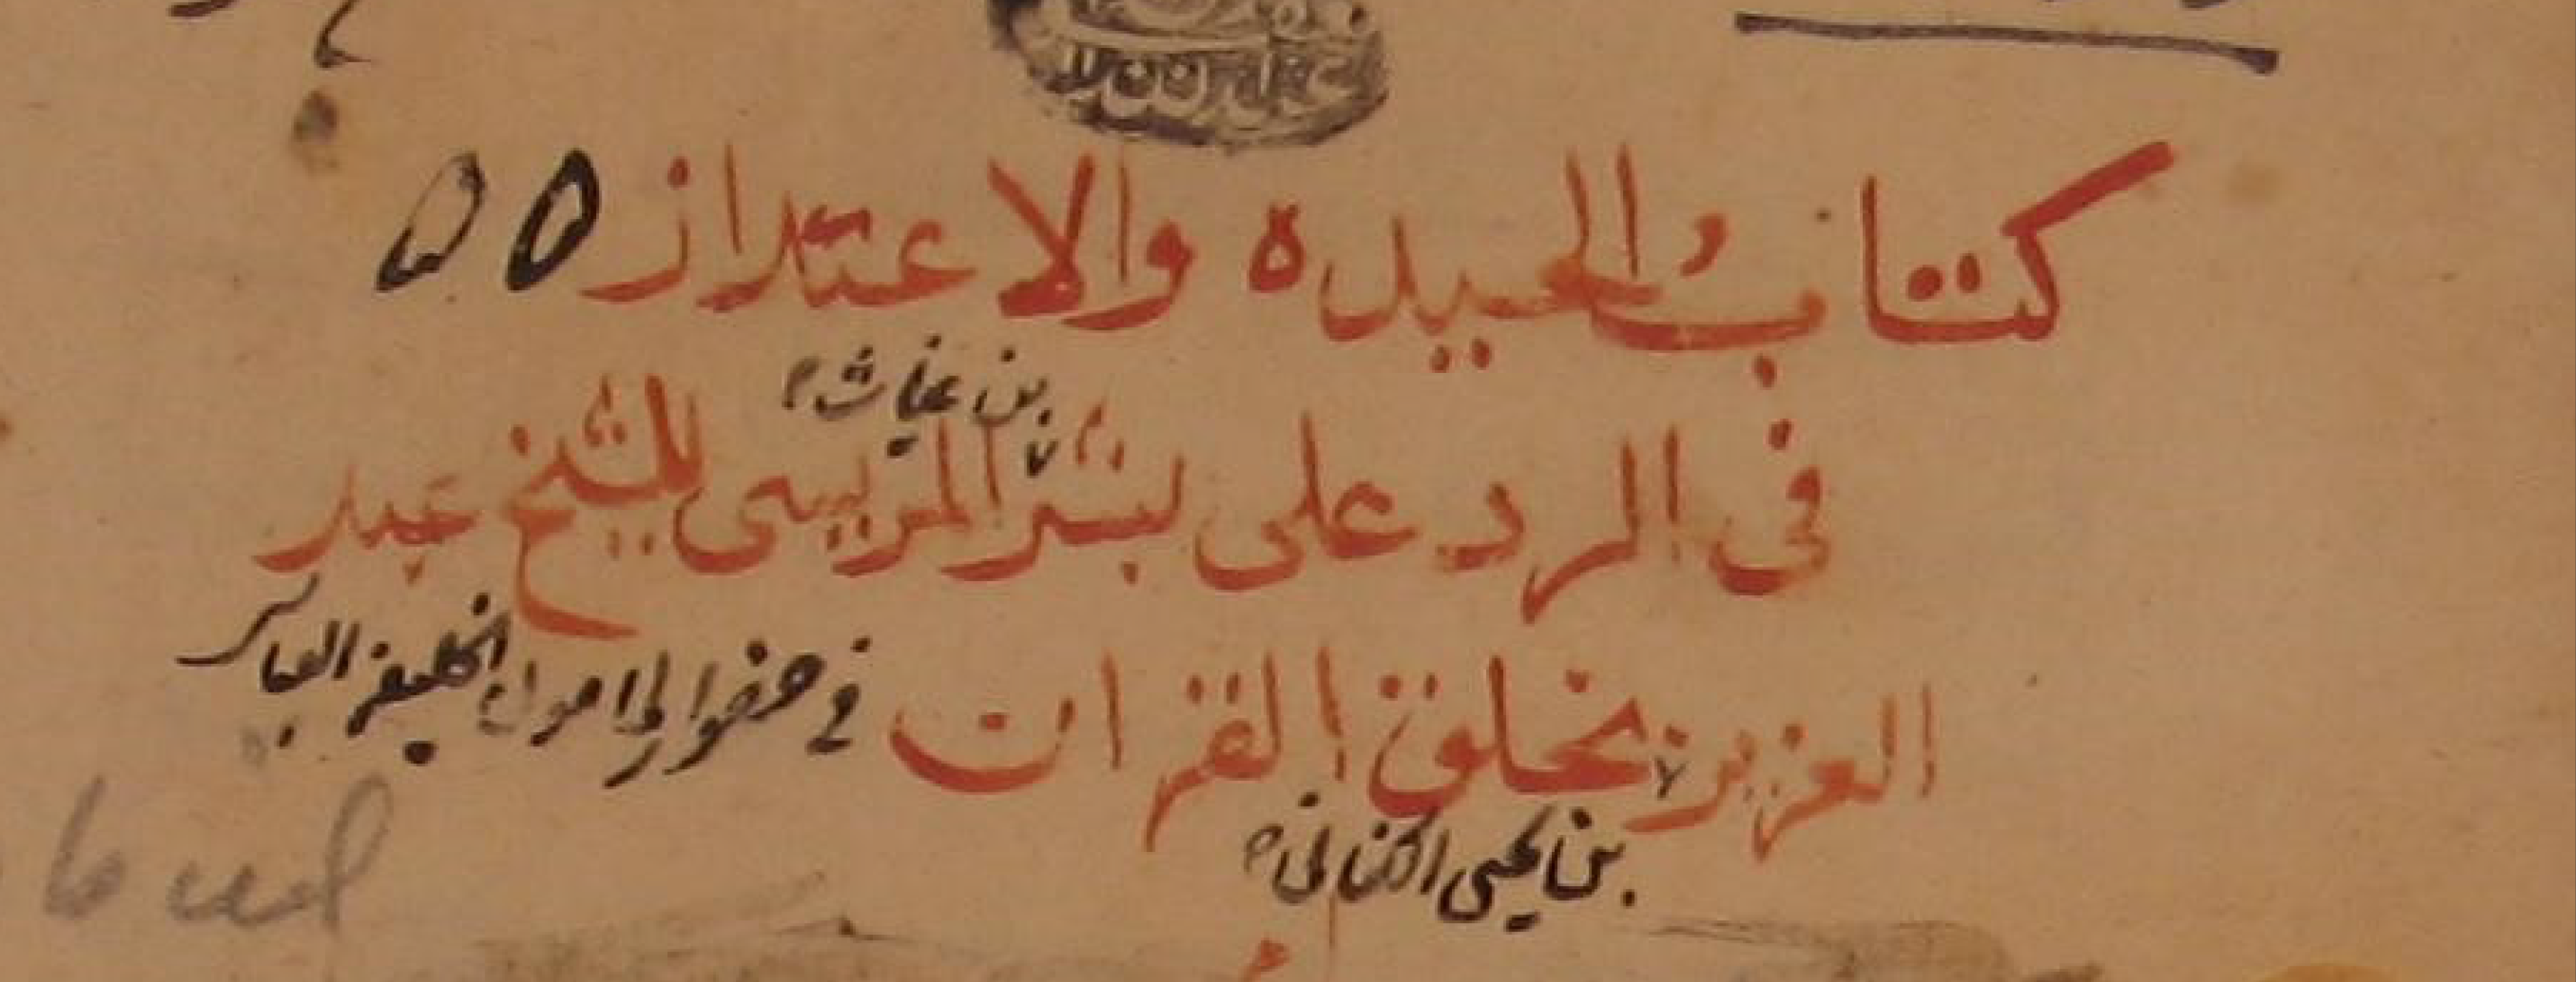 كتاب الحيده والاعتذار ٥٥
بن غياث
فى الرد على بشر المريسى للشيخ عبد
العزيز بخلق القران فى حضور المامون الخليفة العباسى
بن يحيى الكنانى